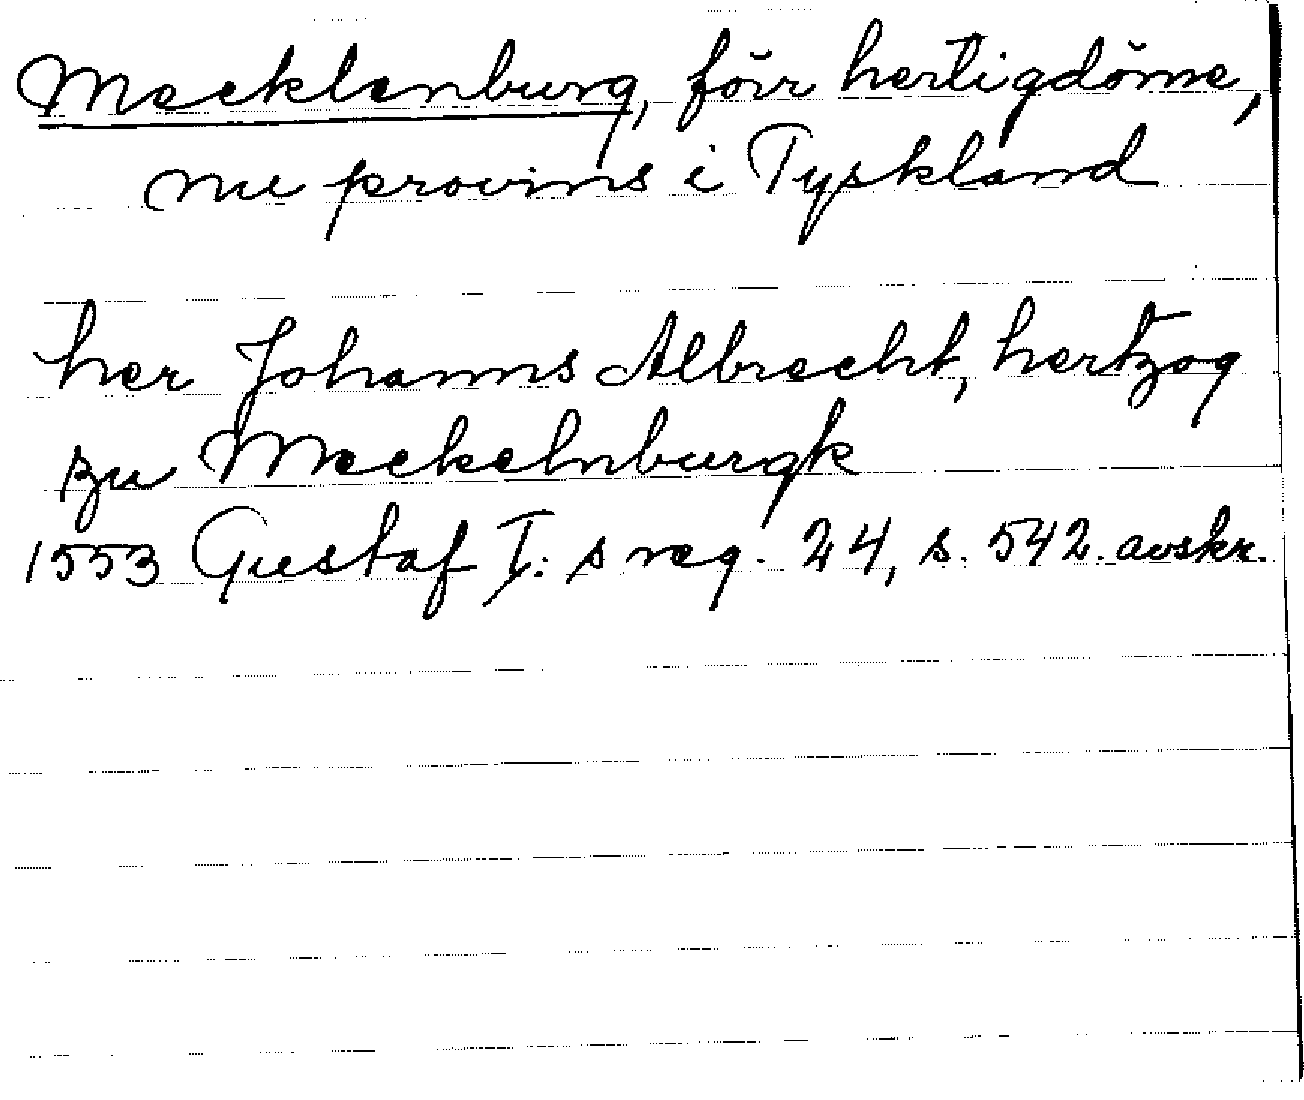 Mecklenburg, förr hertigdöme,
nu provins i Tyskland
her Johanns Albrecht, hertzog
zu Meckelnburgk
1553 Gustaf I:s reg. 24, s. 542. avskr.